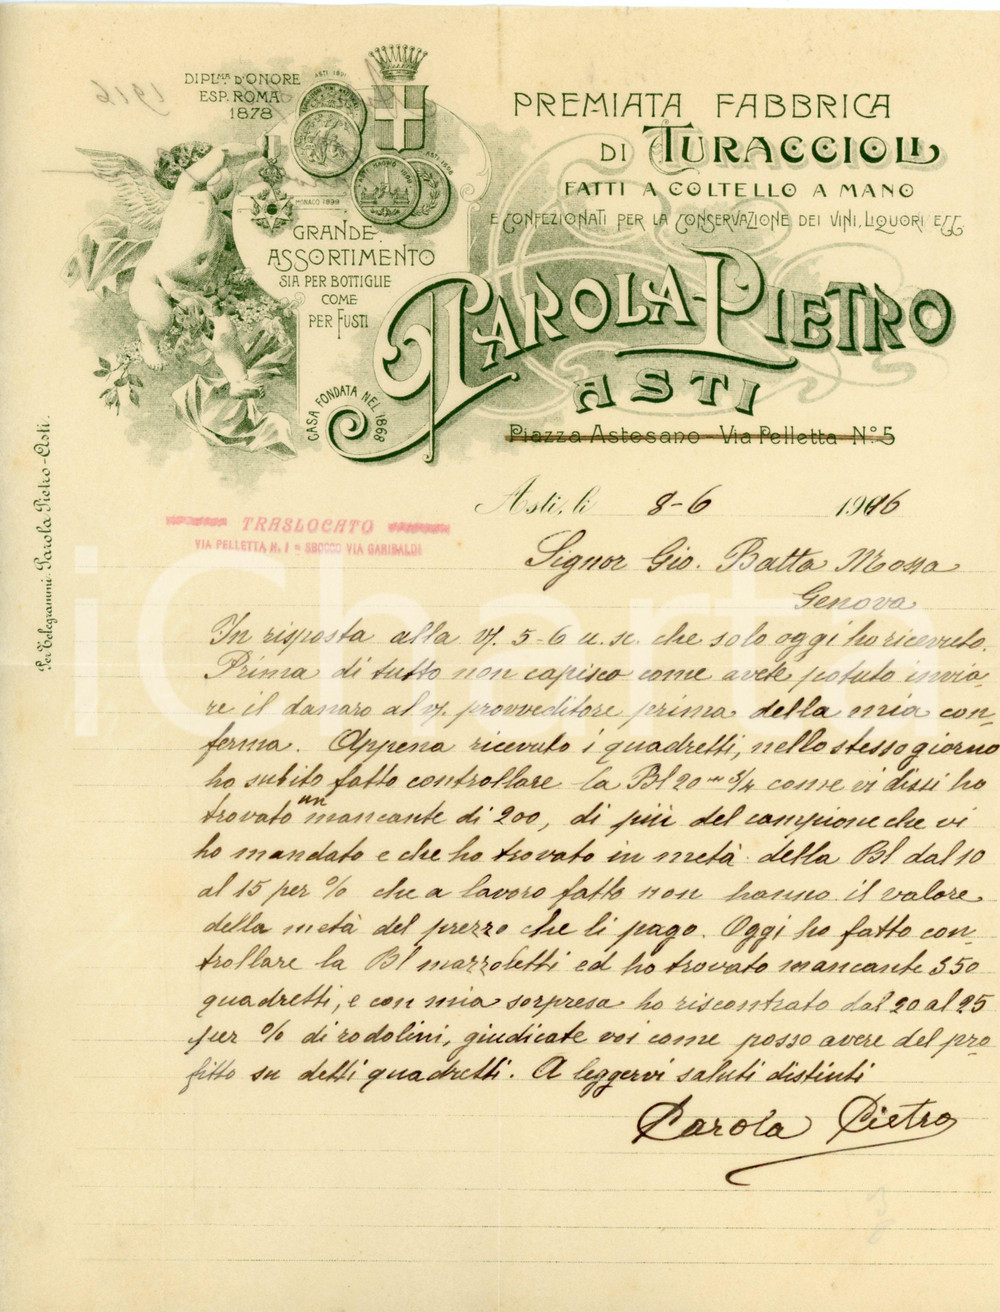 DIPL.MA D'ONORE
ESP. ROMA
1878
1916
ASTI 1898
MONACO 1898
GRANDE
ASSORTIMENTO
SIA PER BOTTIGLIE
COME
PER FUSTI
CASA FONDATA NEL 1868
PREMIATA FABBRICA
DI TURACCIOLI
FATTI A COLTELLO A MANO
E CONFEZIONATI PER LA CONSERVAZIONE DEI VINI, LIQUORI ECC.
PAROLA PIETRO
ASTI
Piazza Astesano - Via Pelletta N.º 5
Per Telegrammi: Parola Pietro-Asti.
Asti, li 8-6 1916
TRASLOCATO
VIA PELLETTA, N. 1 = SBOCCO VIA GARIBALDI
Signor Gio. Batta Mossa
Genova
In risposta alla v/. 5-6 u. sc. che solo oggi ho ricevuto.
Prima di tutto non capisco come avete potuto invia-
re il danaro al v/. provveditore prima della mia con-
ferma. Appena ricevuto i quadretti, nello stesso giorno
ho subito fatto controllare la Bl 20 3/4 come vi dissi ho
trovato un mancante di 200, di più del campione che vi
ho mandato e che ho trovato in metà della Bl dal 10
al 15 per % che a lavoro fatto non hanno il valore
della metà del prezzo che li pago. Oggi ho fatto con-
trollare la Bl mazzoletti ed ho trovato mancante 350
quadretti, e con mia sorpresa ho riscontrato dal 20 al 25
per % di rodolini, giudicate voi come posso avere del pro-
fitto su detti quadretti. A leggervi saluti distinti
Parola Pietro
iCharta